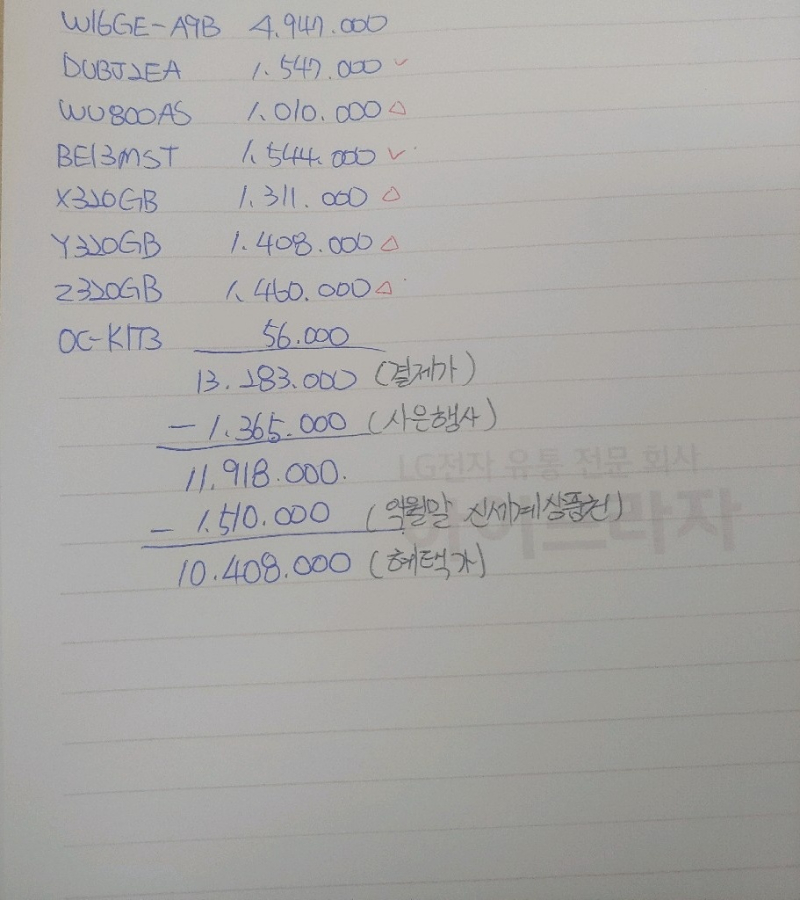 W16GE-A9B 4.947.000
DUBJ2EA 1.547.000 ✓
WU800AS 1.010.000 △
BE13MST 1.544.000 ✓
X320GB 1.311.000 △
Y320GB 1.408.000 △
Z320GB 1.460.000 △
OC-KIT3 56.000
13.283.000 (결제가)
- 1.365.000 (사은행사)
11.918.000.
LG전자 유통 전문 회사
- 1.510.000 (익월말 신세계상품권)
10.408.000 (혜택가)